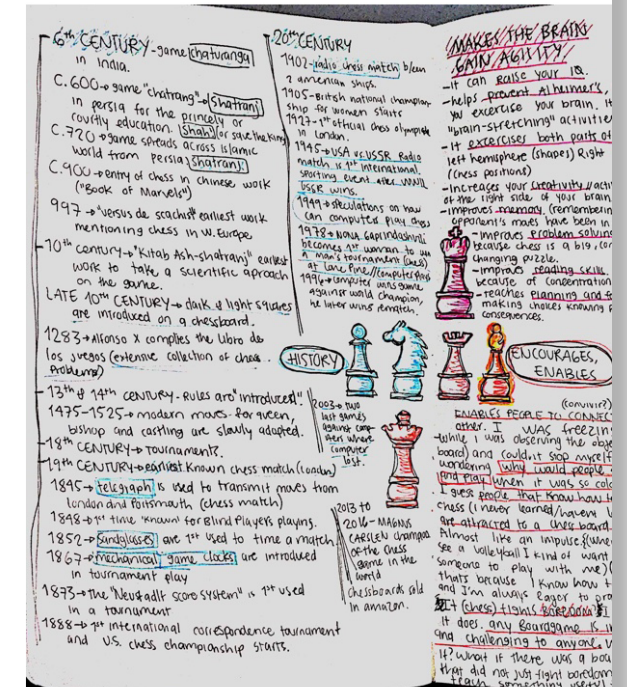 6th CENTURY - game chaturanga
in India.
C.600→ game "chatrang"→ Shatranj
in persia for the princely or
courtly education. Shah! (or save the King
C.720→ game spreads across islamic
world from persia; shatranj.
C.900→ entry of chess in chinese work
("Book of Marvels")
997 → "versus de scachis" earliest work
mentioning chess in W. Europe
10th century→ "Kitab Ash-shatranj" earliest
work to take a scientific aproach
on the game.
LATE 10th CENTURY→ dark & light squares
are introduced on a chessboard.
1283→ Alfonso X complies the Libro de
los juegos (extensive collection of chess
Problems)
13th & 14th century - Rules are "introduced".
1475-1525→ modern moves for queen,
bishop and castling are slowly adopted.
18th CENTURY→ TOURNAMENT?.
19th CENTURY→ earliest known chess match (London)
1845→ telegraph is used to transmit moves from
london and Portsmouth (chess match)
1848→ 1st time "known" for Blind Players playing.
1852→ Sandglasses are 1st used to time a match
1867→ mechanical game clocks are introduced
in tournament play
1873→ the "Neustadtl score system" is 1st used
in a tournament
1888→ 1st international correspondence tournament
and U.S. chess championship starts.
20th CENTURY
1902- radio chess match b/een
2 american ships.
1905- British national champion-
ship for women starts
1927- 1st official chess olympiad
in London.
1945→ USA vs USSR Radio
match is 1st international
sporting event after WWII
USSR wins.
speculations on how
can computers play chess
1978→ NONA Gaprindashvili
becomes 1st woman to win
a man's tournament (chess)
at Lone Pine//
1996→ computer wins game
against world champion,
he later wins rematch.
HISTORY
2003→ two
last games
against comp-
uters where
computer
lost.
2013 to
2016- MAGNUS
CARSLEN champion
of the chess
game in the
world
chessboards sold
in amazon.
MAKES THE BRAIN
GAIN AGILITY
- it can raise your IQ.
- helps prevent Alheimer's,
you excercise your brain. It
"brain-stretching" activities
- It excercises both parts of
left hemisphere (shapes) Right
(chess positions)
- Increases your creativity
of the right side of your brain
- improves memory. (rememberin
opponent's moves have been in
- improves problem solving
because chess is a big,
changing puzzle.
- improves reading skill.
because of concentration
- teaches planning and
making choices knowing
consequences.
ENCOURAGES,
ENABLES
(convivir?)
ENABLES PEOPLE TO CONNEC
other. I WAS FREEZIN
while I was observing the obje
board) and couldnt stop myself
wondering why would people
and play when it was so cold
I guess people that know how t
chess (I never learned/havent
are attracted to a chess board.
Almost like an impulse (whe
see a volleyball I kind of want
someone to play with me)
thats because I know how t
and I'm always eager to pra
It (chess) fights BOREDOM
It does. any Boardgame is
and challenging to anyone.
it? What if there was a boa
that did not just fight boredom
teach something useful